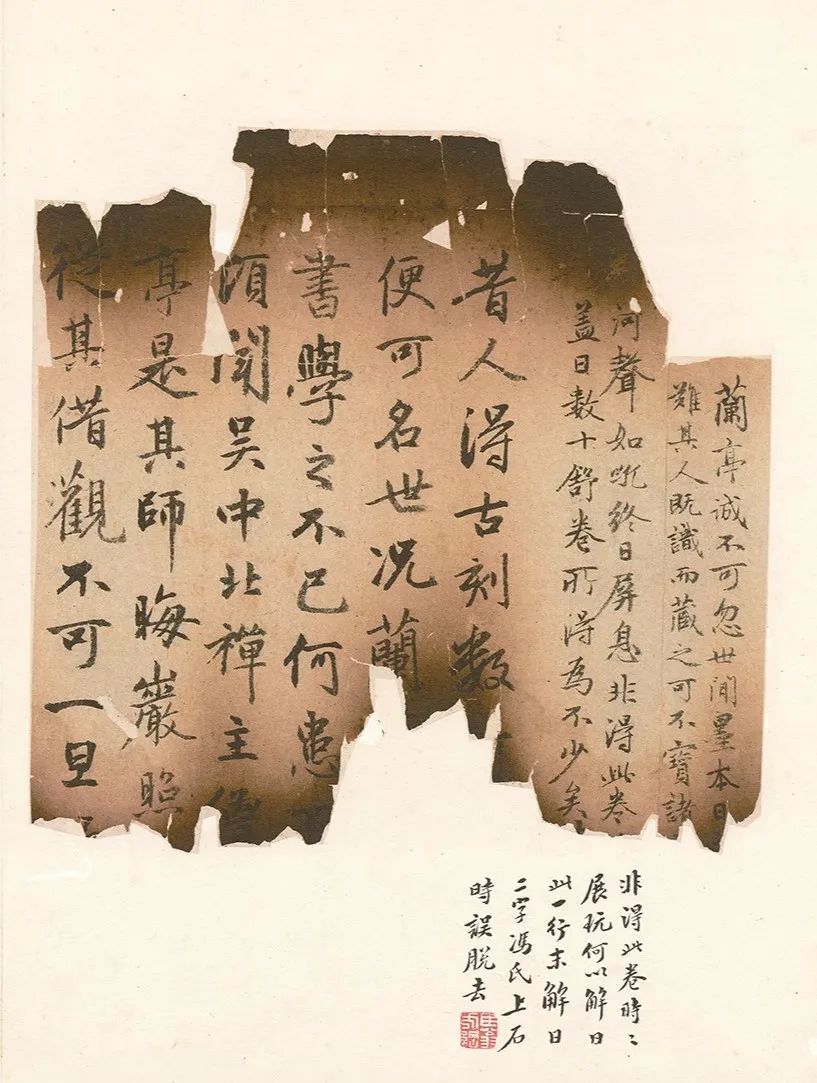 蘭亭誠不可忽世間墨本日
難其人既識而藏之可不寶諸
河聲如吼終日屏息非得此卷
蓋日數十舒卷所得為不少矣
昔人得古刻數
便可名世況蘭
書學之不已何患
頃聞吴中北禪主僧
亭是其師晦巖照
從其借觀不可一旦
非得此卷時〻
展玩何以解日
此一行末解日
二字馮氏上石
時誤脫去